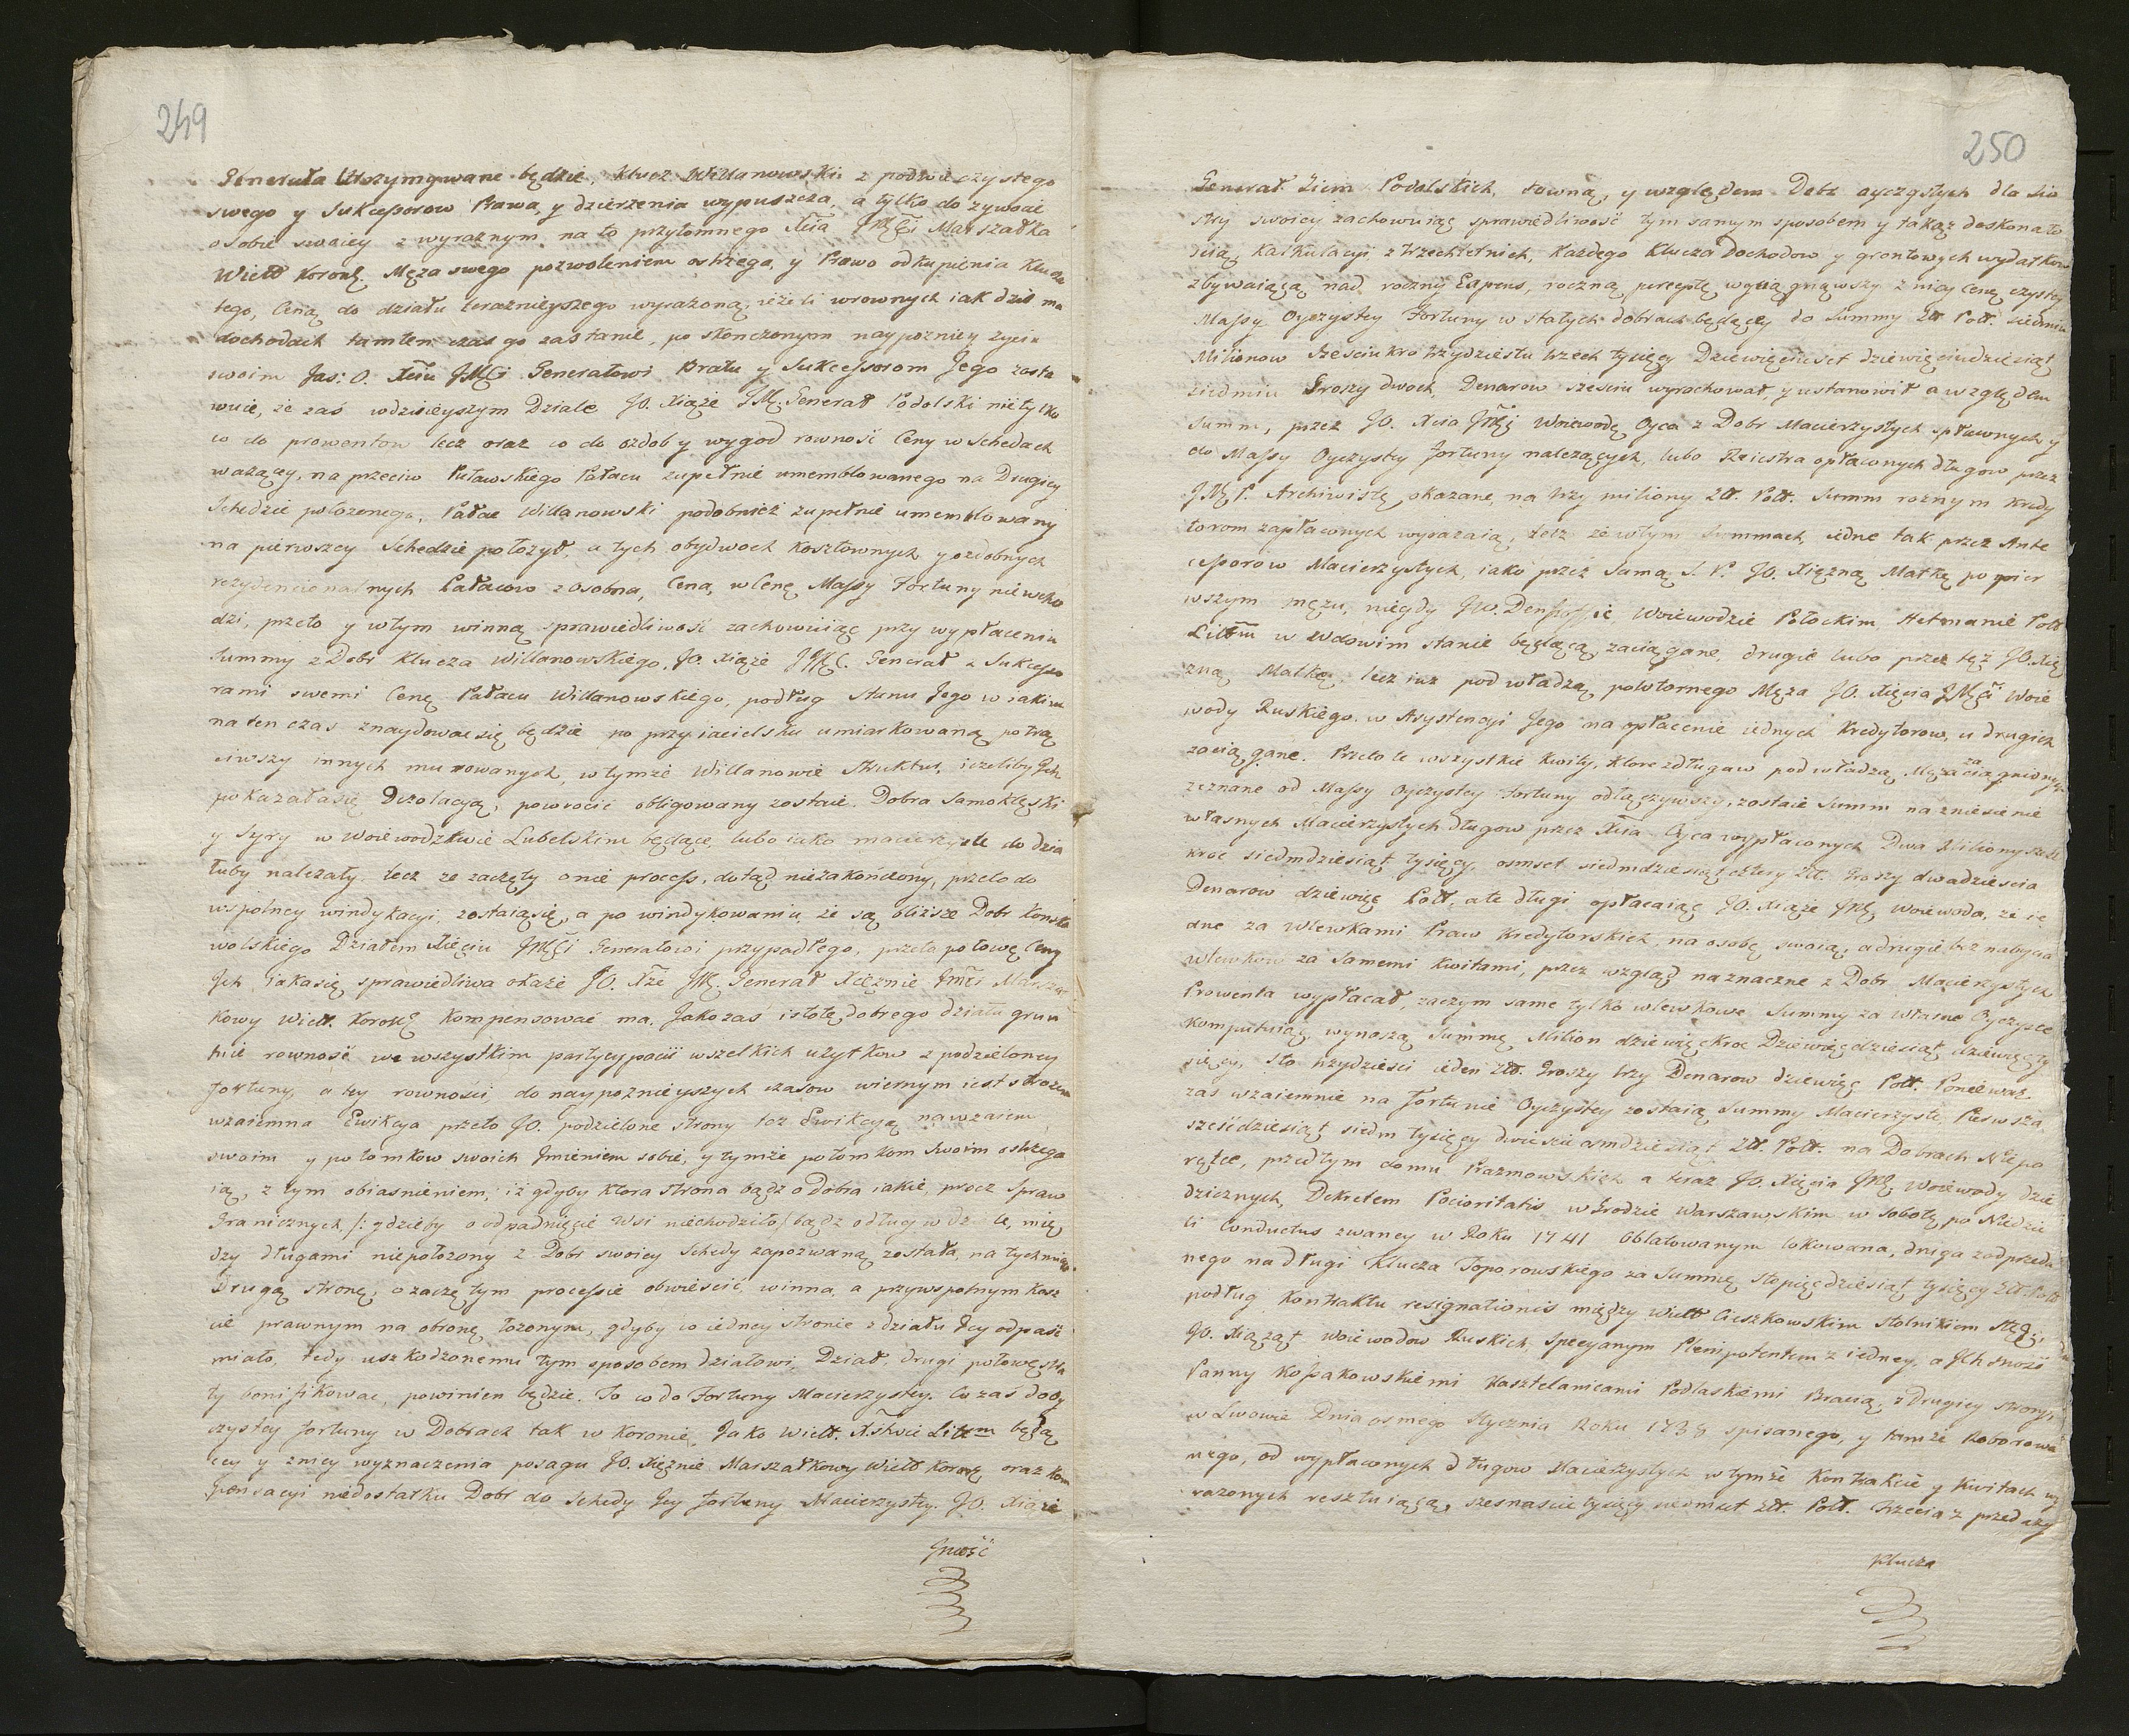 249
Generała Utrzymywane będzie, Klucz Willanowski z podwieczystego
swego y Sukcessorow Prawa, y dzierżenia wypuszcza, a tylko do zywocie
osobie swoiey z wyraznym na to przytomnego Xcia JMCi Marszałka
Wielo Koronę. Męża swego pozwoleniem ostrzega, y Prawo odkupienia Klucza
tego, Ceną do działu teraznieyszego wyrażoną, ieżeli wrownych iak dziś ma
dochodach tamten czas go zastanie, po skonczonym naypozniey życiu
swoim Jas: O. Xciu JMCi Generałowi Bratu y Sukcessorom Jego zosta
wuie, że zaś wdzisieyszym Dziale JO. Xiąże JMC. Generał Podolski nietylko
co do prowentow lecz oraz co do ozdoby wygod rowność Ceny w Schedach
ważący, na przeciw Puławskiego Pałacu zupełnie umeblowanego na Drugiey
Schedzie położonego, Pałac Willanowski podobnież zupełnie umemblowany
na pierwszey Schedzie położył, a tych obydwoch kosztownych y ozdobnych
rezydencionalnych Pałacow zosobna, Cena, w Cenę Massy Fortuny niewcho
dzi, przeto y w tym winną sprawiedliwość zachowuiąc przy wypłaceniu
Summy z Dobr Klucza Willanowskiego, JO. Xiąże JMC. Generał z Sukcesso
rami swemi Cenę Pałacu Willanowskiego, podług Stanu Jego w iakim
na ten czas znaydować się będzie po przyiacielsku umiarkowaną, potrą
ciwszy innych murowanych, w tymże Willanowie Struktur, ieżeliby Jch
pokazała się Dezolacya, powrocić obligowany zostaie. Dobra Samoklęski
y Syry w Woiewodztwie Lubelskim będące, lubo iako macierzyste do dzia
łuby należały, lecz ze zaczęty onie process, dotąd niezakończony, przeto do
wspolney windykacyi, zostaią się, a po windykowaniu, że są bliższe Dobr Konsko
wolskiego Działem Xięciu JMCi Generałowi przypadłego, przeto połowę Ceny
Jch iaka się sprawiedliwa okaże JO. Xże JMC. Generał Xiężnie JMci Marszał
kowy Wiel. Koronę kompensować ma. Jako zaś istotę dobrego działu grun
tuie rowność we wszystkim partycypacii wszelkich użytkow z podzieloney
fortuny, a tey rowności, do naypoznieyszych czasow wiernym iest strożem
wzaiemna Ewikcya przeto JO. podzielone strony toż Ewikcyą nawzaiem
swoim y potomkow swoich Jmieniem sobie, y tymże potomkom swoim ostrzega
ią, z tym obiasnieniem, iż gdyby ktora strona bądź o Dobra iakie, procz Spraw
Granicznych, /: gdzieby o odpadnięcie Wsi niechodziło, / bądź o dług w dziale, mię
dzy długami niepołożony z Dobr swoiey Schedy zapozwaną została, na tychmiast
Drugą stronę, o zaczętym processie obwieścić winna, a przy wspolnym kosz
cie prawnym na obronę łożonym, gdyby co iedney stronie z działu Jey odpaść
miało, tedy uszkodzonemu tym sposobem działowi, Dział, drugi połowę stra
ty bonifikować, powinien będzie. To co do Fortuny Macierzystey. Co zaś do Oy
czystey fortuny w Dobrach tak w Koronie, Jako Wiel. Xstwie Littm będą
cey y z niey wyznaczenia posagu JO. Xiężnie Marszałkowy Wielo Koronę oraz kom
pensacyi niedostatku Dobr do Schedy Jey fortuny Macierzystey. JO. Xiąże
Jmość
250
Generał Ziem Podolskich, rowną, y względem Dobr oyczystych dla Sio
stry swoiey zachowuiąc sprawiedliwość tym samym sposobem y takąż doskonało
ścią Kalkulacyi, z trzechletnich, Każdego Klucza Dochodow y grontowych wydatkow
zbywaiącą nad roczny Expens, roczną perceptę wyciągnąwszy z niey Cenę czystey
Massy Oyczystey Fortuny w stałych dobrach będącey do Summy Zł. Poll. siedmiu
Milionow sześciukroć trzydziestu trzech tysięcy Dziewięciuset dziewięciudziesiąt
siedmiu Groszy dwoch, Denarow sześciu wyrachował, y ustanowił a względem
Summ, przez JO. Xcia JMCi Woiewodę Oyca z Dobr Macierzystych spławnych y
do Massy Oyczystey Fortuny należących, lubo Reiestra opłaconych długow przez
JMC P. Archiwistę okazane, na trzy miliony Zł. Poll. Summ roznym Kredy
torom zapłaconych wyrażaią, lecz ze w tym Summach, iedne tak przez Ante
cessorow Macierzystych, iako przez Samą S. P. JO. Xiężną Matkę po pier
wszym mężu, niegdy JW. Denhoffie, Woiewodzie Połockim Hetmanie Poll
Littm w wdowim stanie będącą, zaciągane, drugie lubo przez tęż JO. Xię
zną Matkę lecz iuz pod władzą powtornego Męża JO. Xięcia JMCi Woie
wody Ruskiego w Asystencyi Jego na opłacenie iednych Kredytorow, u drugich
zaciągane. Przeto te wszystkie Kwity, Ktore z długow pod władzą Męża zaciągnionych
zeznane od Massy Oyczystey Fortuny odłączywszy, zostaie Summ na zniesienie
własnych Macierzystych długow przez Xcia Oyca wypłaconych Dwa Miliony sześć
kroć siedmdziesiąt tysięcy, osmset siedmdziesiąt cztery Zł. Groszy dwadziescia
Denarow dziewięć Poll, ale długi opłacaiąc JO. Xiąże JMC Woiewoda, że ie
dne za Wlewkami Praw Kredytorskich, na osobę swoią, a drugie bez nabycia
wlewkow za Samemi Kwitami, przez wzgląd na znaczne z Dobr Macierzystych
Prowenta wypłacał, zaczym same tylko wlewkowe Summy za własne Oyczyste
komputuiąc, wynoszą Summę Milion dziewięćkroć Dziewięćdziesiąt dziewięć ty
sięcy, sto trzydziesci ieden Zł. Groszy trzy Denarow dziewięć Poll. Ponieważ
zaś wzaiemnie na Fortunie Oyczystey zostaią Summy Macierzyste, Pierwsza
sześćdziesiąt siedm tysięcy dwieście osmdziesiąt Zł. Poll. na Dobrach Niepo
ręcie, przedtym domu Prazmowskich a teraz JO. Xięcia JMC Woiewody dzie
dzicznych, Dekretem Pocioritatis w Grodzie Warszawskim w Sobotę po Niedzie
li Conductus zwaney w Roku 1741 Oblatowanym lokowana, druga z odprzeda
nego na długi Klucza Toporowskiego za Summę Stopięćdziesiąt tysięcy Zł. Poll
podług Kontraktu resignationis między Wiel. Cieszkowskim Stolnikiem
JO. Xiążąt Woiewodow Ruskich, Specyanym Plenipotentem z iedney, a Jch mość
Panny Kossakowskiemi Kasztelanicami Podlaskiemi Bracią, z Drugiey strony,
w Lwowie Dnia osmego Stycznia Roku 1738 spisanego, y tamże Roborowa
nego, od wypłaconych długow Macierzystych w tymże Kontrakcie y Kwitach wy
rażonych resztuiącą, szesnaście tysięcy siedmset Zł. Poll. Trzecia z przedaży
Klucza